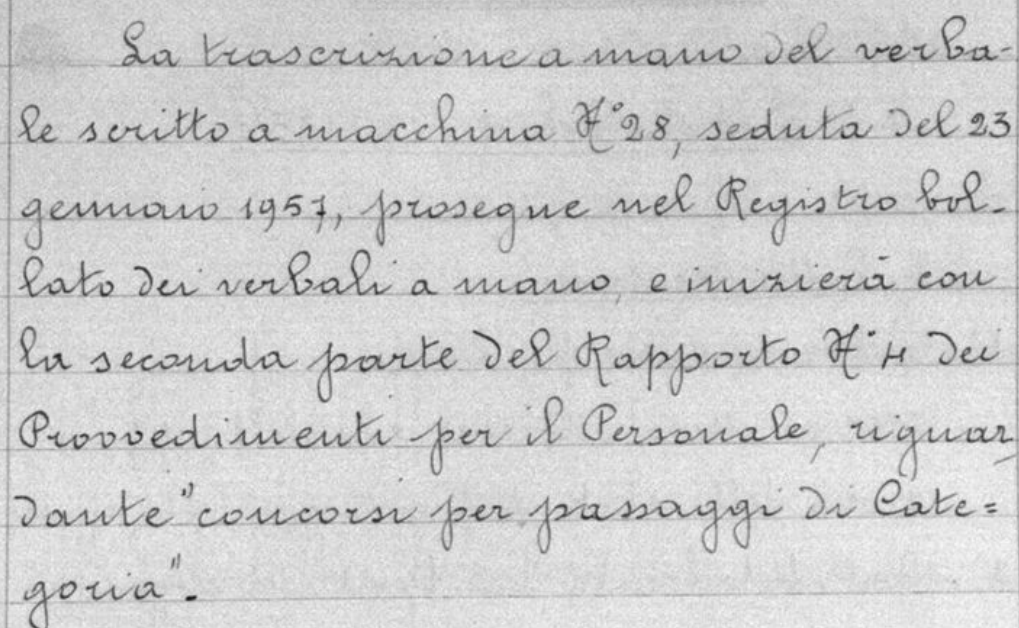 La trascrizione a mano del verba-
le scritto a macchina N° 28, seduta del 23
gennaio 1957, prosegue nel Registro bol-
lato dei verbali a mano, e inizierà con
la seconda parte del Rapporto N° 4 dei
Provvedimenti per il Personale, riguar
dante "concorsi per passaggi di Cate=
goria".